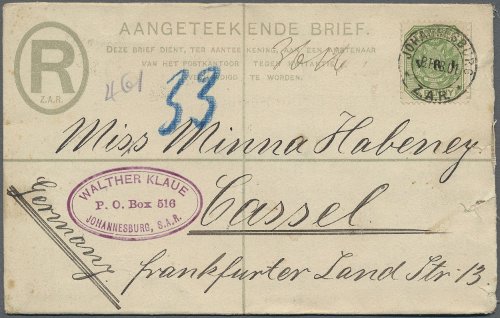 AANGETEEKENDE BRIEF.
DEZE BRIEF DIENT, TER AANTEEKENING, AAN EEN AMBTENAAR
VAN HET POSTKANTOOR TEGEN
TE WORDEN.
R
Z.A.R.
461
33
JOHANNESBURG
Z.A.R.
Miss Minna Habeney
WALTHER KLAUE
P. O. Box 516
JOHANNESBURG, S.A.R.
Cassel.
Germany.
Frankfurter Land Str. 13.